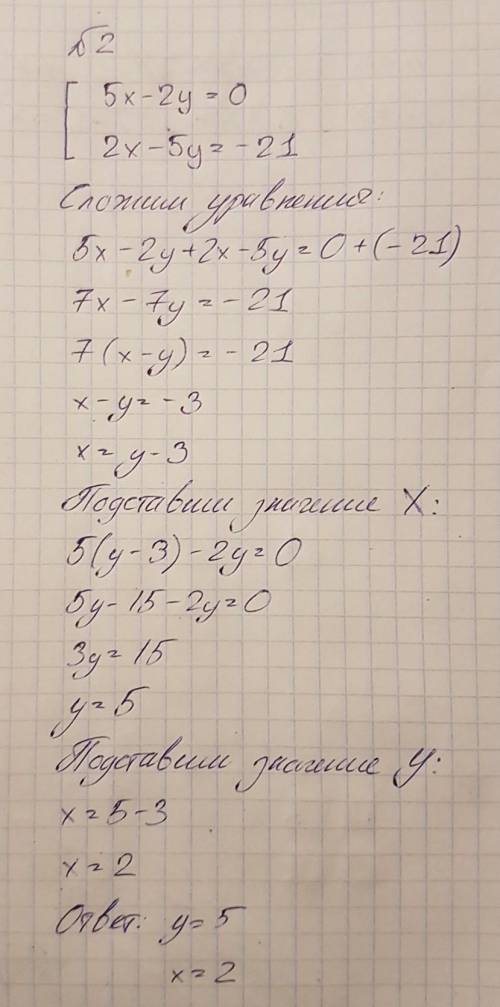 №2
5x-2y=0
2x-5y=-21
Сложим уравнения:
5x-2y+2x-5y=0+(-21)
7x-7y=-21
7(x-y)=-21
x-y=-3
x=y-3
Подставим значение X:
5(y-3)-2y=0
5y-15-2y=0
3y=15
y=5
Подставим значение y:
x=5-3
x=2
Ответ: y=5
x=2